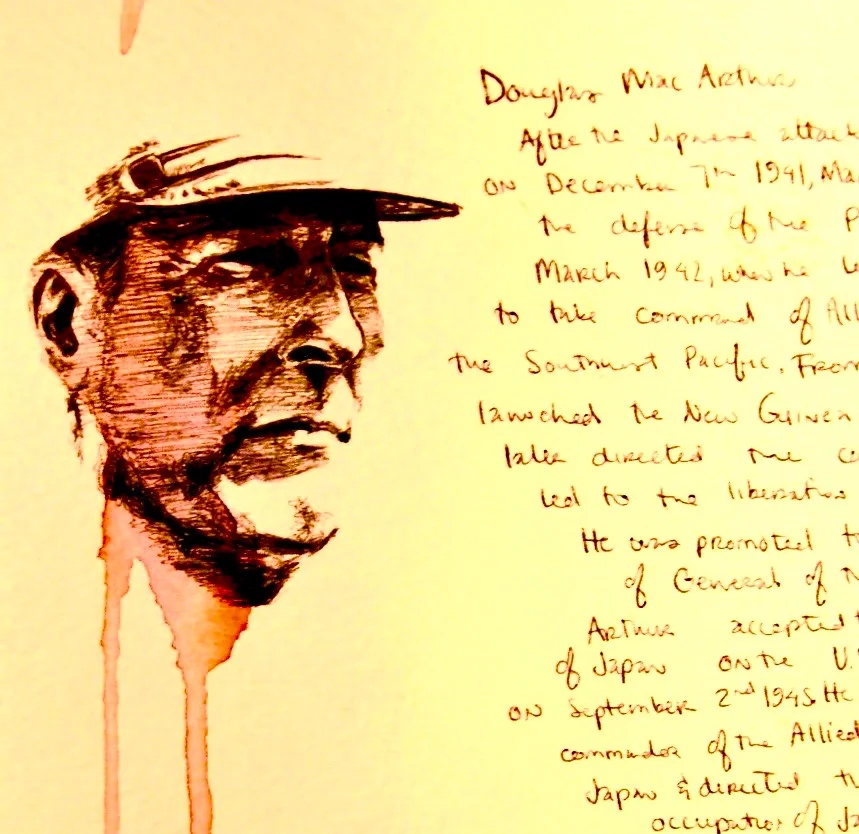 Douglas Mac Arthur
After the Japanese attack
on December 7th 1941, Ma
the defense of the P
March 1942, when he le
to take command of All
the Southwest Pacific. From
launched the New Guinea
later directed the c
led to the liberation
He was promoted to
of General of th
Arthur accepted t
of Japan on the U.
on September 2nd 1945. He
commander of the Allied
Japan & directed th
occupation of Ja